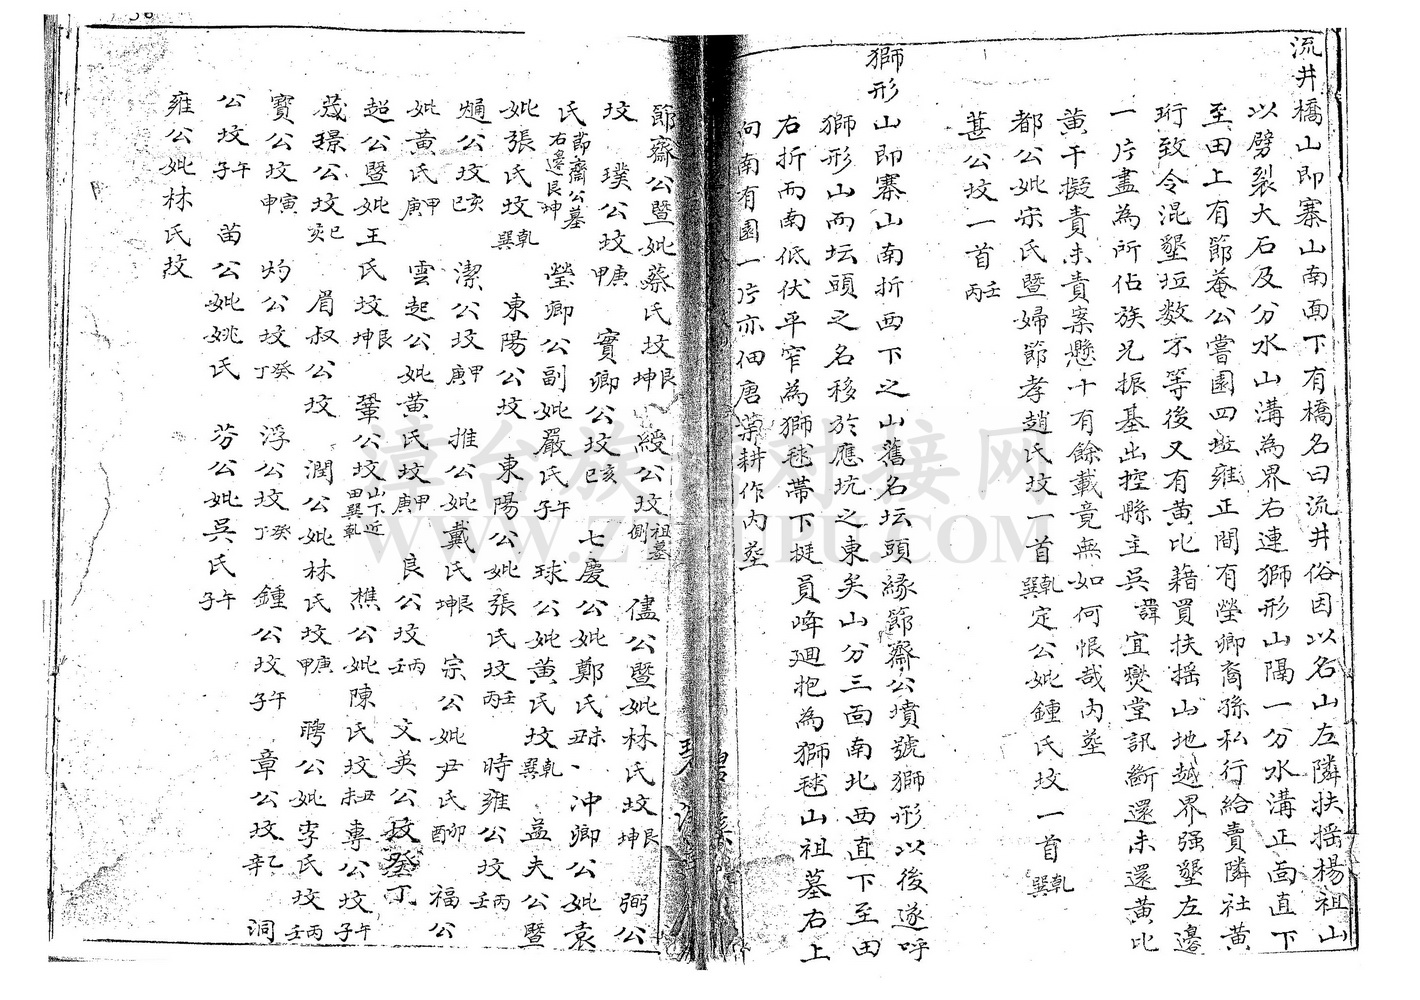 流井橋山即寨山南面下有橋名曰流井俗因以名山左隣扶摇楊祖山
以劈裂大石及分水山溝為界右連獅形山隔一分水溝正面直下
至田上有節菴公嘗園四坵雍正間有瑩卿裔孫私行給賣隣社黃
珩致令混墾垣数次等後又有黃比籍買扶摇山地越界强墾左邊
一片盡為所佔族兄振基出控縣主吳諱宜燮堂訊斷還未還黃比
黃干擬責未責案懸十有餘載竟無如何恨哉內塟
都公妣宋氏暨婦節孝趙氏坟一首乾巽定公妣鍾氏坟一首乾巽
葚公坟一首壬丙
獅形山即寨山南折西下之山舊名坛頭緣節齋公墳號獅形以後遂呼
獅形山而坛頭之名移於應坑之東矣山分三面南北西直下至田
右折而南低伏平窄為獅毬蒂下挺員唪廻抱為獅毬山祖墓右上
向南有園一片亦佃唐荣耕作內塟
節齋公暨妣蔡氏坟艮坤 綬公坟祖墓側 儘公暨妣林氏坟艮坤 弼公
坟 璞公坟庚甲 實卿公坟亥巳 七慶公妣鄭氏未丑 冲卿公妣袁
氏節齋公墓右邊艮坤 瑩卿公副妣嚴氏午子 球公妣黃氏坟乾巽 益夫公暨
妣張氏坟乾巽 東陽公坟 東陽公妣張氏坟壬丙 時雍公坟丙壬
公坟亥巳 潔公坟甲庚 推公妣戴氏艮坤 宗公妣尹氏卯酉 福公
妣黃氏甲庚 雲起公妣黃氏坟甲庚 良公坟丙壬 文英公坟癸丁
超公暨妣王氏坟艮坤 鞏公坟山下近田巽乾 樵公妣陳氏坟丑未 專公坟午子
璟公坟巳亥 眉叔公坟 潤公妣林氏坟庚甲 聘公妣李氏坟丙壬
寳公坟寅申 灼公坟癸丁 浮公坟癸丁 鍾公坟午子 章公坟乙辛 洞
公坟午子 苗公妣姚氏 芬公妣吳氏午子
雍公妣林氏坟